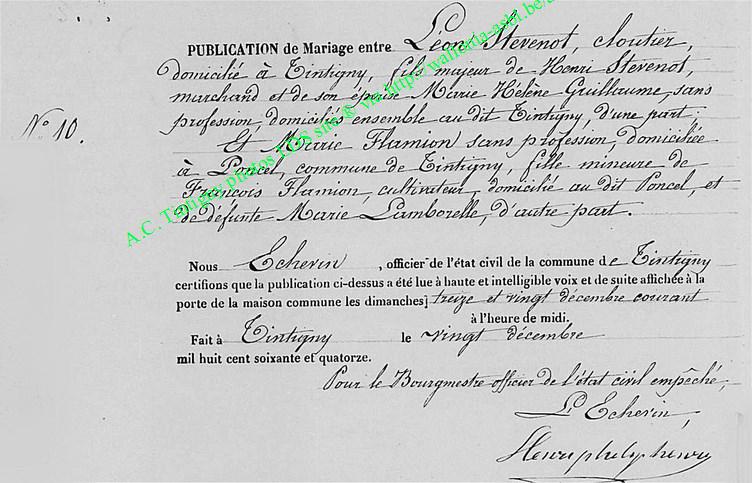 PUBLICATION de Mariage entre Léon Stevenot, cloutier,
domicilié à Tintigny, fils majeur de Henri Stevenot,
marchand et de son épouse Marie Hélène Guillaume, sans
profession, domiciliés ensemble au dit Tintigny, d'une part;
N.° 10.
Et Marie Flamion sans profession, domiciliée
à Poncel, commune de Tintigny, fille mineure de
François Flamion, cultivateur, domicilié au dit Poncel, et
de défunte Marie Lamborelle, d'autre part.
Nous Echevin, officier de l'état civil de la commune de Tintigny
certifions que la publication ci-dessus a été lue à haute et intelligible voix et de suite affichée à la
porte de la maison commune les dimanches treize et vingt décembre courant
à l'heure de midi.
Fait à Tintigny le vingt décembre
mil huit cent soixante et quatorze.
Pour le Bourgmestre officier de l'état civil empêché,
L'Echevin,
A.C. Tintigny photos LDS site @ via http:/wallonia-asbl.be/